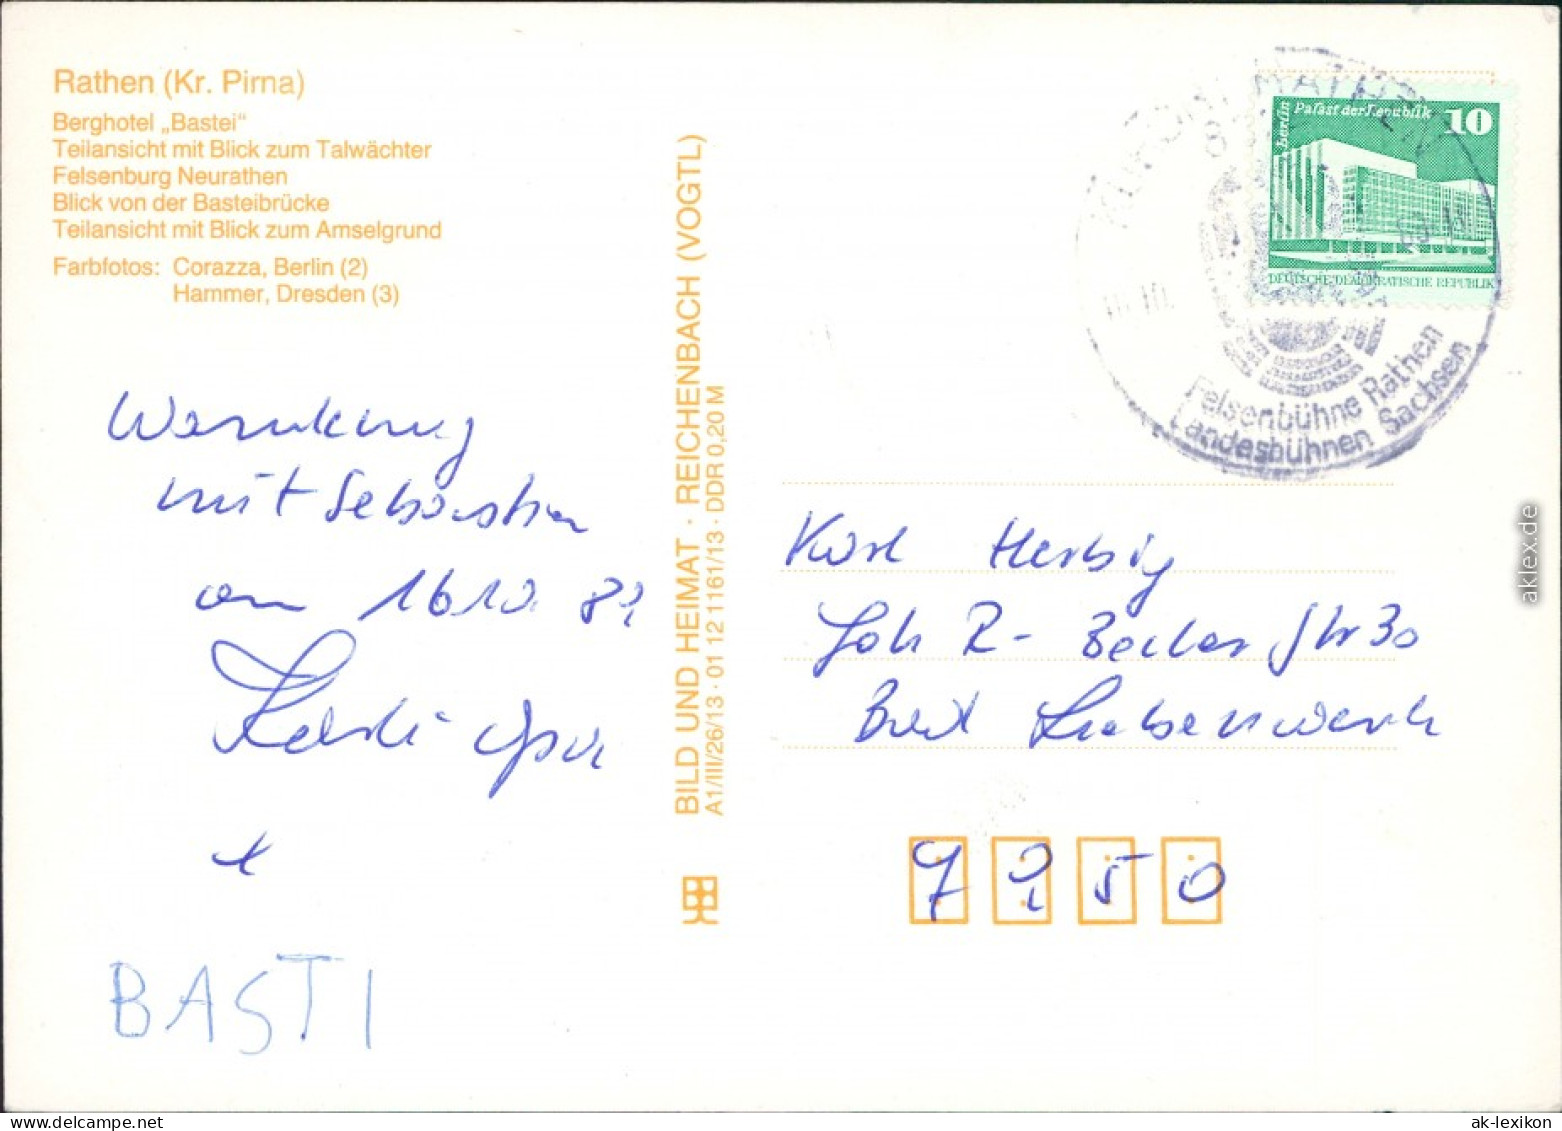 Rathen (Kr. Pirna)
Berghotel „Bastei“
Teilansicht mit Blick zum Talwächter
Felsenburg Neurathen
Blick von der Basteibrücke
Teilansicht mit Blick zum Amselgrund
Farbfotos: Corazza, Berlin (2)
Hammer, Dresden (3)
BILD UND HEIMAT · REICHENBACH (VOGTL)
A1/III/26/13 · 01 12 1161/13 · DDR 0,20 M
Berlin Palast der Republik 10
DEUTSCHE DEMOKRATISCHE REPUBLIK
KURORT RATHEN
Felsenbühne Rathen
Landesbühnen Sachsen
mit Sebastian
am 16 10.
BASTI
Karl Herbig
Joh R- Becher Str 30
Bad Liebenwerda
7950
aklex.de
www.delcampe.net
ak-lexikon